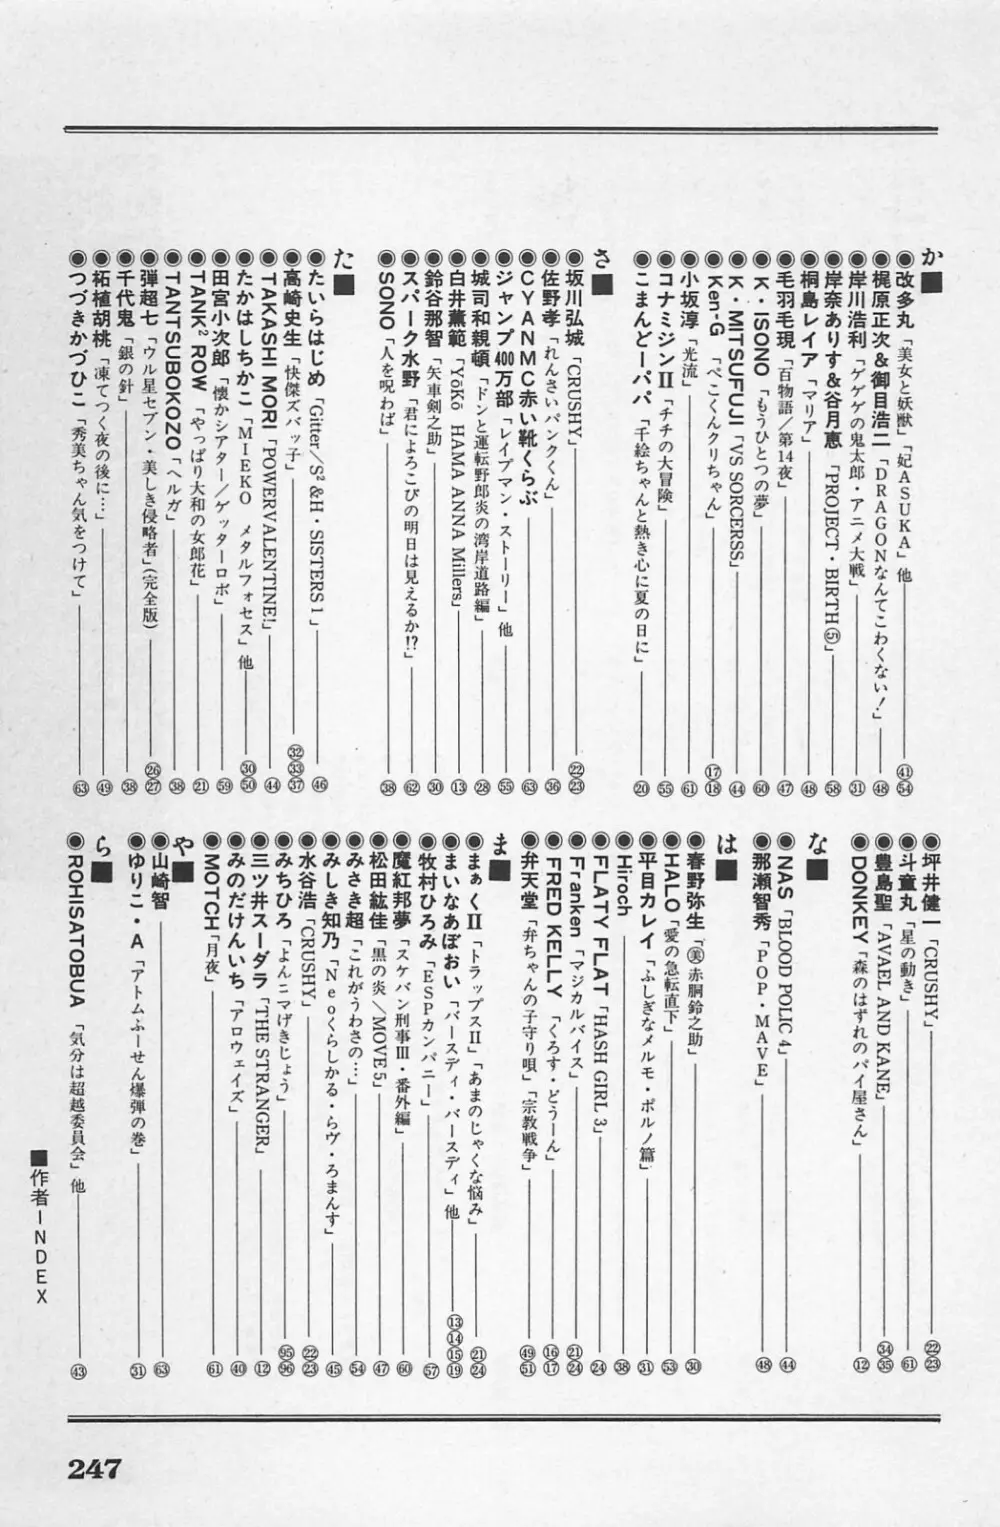 か■
◉改多丸「美女と妖獣」「妃ASUKA」他 ㊶54
◉梶原正次&御目浩二「DRAGONなんてこわくない!」 ㊽
◉岸川浩利「ゲゲゲの鬼太郎・アニメ大戦」 ㉛
◉岸奈ありす&谷月恵「PROJECT・BIRTH⑤」 58
◉桐島レイア「マリア」 ㊽
◉毛羽毛現「百物語/第14夜」 ㊼
◉K・ISONO「もうひとつの夢」 60
◉K・MITSUFUJI「VS SORCERSS」 ㊹
◉Ken-G「ぺこくんクリちゃん」 ⑰⑱
◉小坂淳「光流」 61
◉コナミジンII「チチの大冒険」 55
◉こまんどーパパ「千絵ちゃんと熱き心に夏の日に」 ⑳
さ■
◉坂川弘城「CRUSHY」 ㉒㉓
◉佐野孝「れんさいパンクくん」 ㊱
◉CYANMC赤い靴くらぶ 63
◉ジャンプ400万部「レイプマン・ストーリー」他 55
◉城司和親頓「ドンと運転野郎炎の湾岸道路編」 ㉘
◉白井薫範「YōKō HAMA ANNA Millers」 ⑬
◉鈴谷那智「矢車剣之助」 ㉚
◉スパーク水野「君によろこびの明日は見えるか!?」 62
◉SONO「人を呪わば」 ㊳
た■
◉たいらはじめ「Gitter/S²&H・SISTERS 1」 ㊻
◉高崎史生「快傑ズバッ子」 ㉜㉝㊲
◉TAKASHI MORI「POWERVALENTINE!」 ㊹
◉たかはしちかこ「MIEKO メタルフォセス」他 ㉚㊿
◉田宮小次郎「懐かシアター/ゲッターロボ」 59
◉TANK² ROW「やっぱり大和の女郎花」 ㉑
◉TANTSUBOKOZO「ヘルガ」 ㊳
◉弾超七「ウル星セブン・美しき侵略者」(完全版) ㉖㉗
◉千代鬼「銀の針」 ㊳
◉柘植胡桃「凍てつく夜の後に…」 ㊾
◉つづきかづひこ「秀美ちゃん気をつけて」 63
◉坪井健一「CRUSHY」 ㉒㉓
◉斗童丸「星の動き」 61
◉豊島聖「AVAEL AND KANE」 ㉞㉟
◉DONKEY「森のはずれのパイ屋さん」 ⑫
な■
◉NAS「BLOOD POLIC 4」 ㊹
◉那瀬智秀「POP・MAVE」 ㊽
は■
◉春野弥生「㊤赤胴鈴之助」 ㉚
◉HALO「愛の急転直下」 53
◉平目カレイ「ふしぎなメルモ・ポルノ篇」 ㉛
◉Hiroch ㊳
◉FLATY FLAT「HASH GIRL 3」 ㉔
◉Franken「マジカルバイス」 ㉑㉔
◉FRED KELLY「くろす・どうーん」 ⑯⑰
◉弁天堂「弁ちゃんの子守り唄」「宗教戦争」 ㊾51
ま■
◉まぁくII「トラップスII」「あまのじゃくな悩み」 ㉑㉔
◉まいなあぼおい「バースディ・バースディ」他 ⑬⑭⑮⑲
◉牧村ひろみ「ESPカンパニー」 57
◉魔紅邦夢「スケバン刑事III・番外編」 60
◉松田紘佳「黒の炎/MOVE5」 ㊼
◉みさき超「これがうわさの…」 54
◉みしき知乃「Neoくらしかる・らヴ・ろまんす」 ㊺
◉水谷浩「CRUSHY」 ㉒㉓
◉みちひろ「よんニマげきじょう」 95 96
◉三ツ井スーダラ「THE STRANGER」 ⑫
◉みのだけんいち「アロウェイズ」 ㊵
◉MOTCH「月夜」 61
や■
◉山崎智 63
◉ゆりこ・A「アトムふーせん爆弾の巻」 ㉛
ら■
◉ROHISATOBUA「気分は超越委員会」他 ㊸
■作者INDEX
247